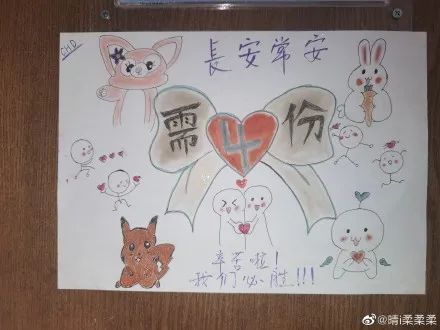 CHD
長安常安
需4份
辛苦啦!
我们必胜!!!
@晴i柔柔柔